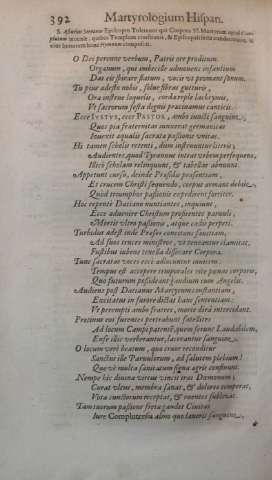 392 Martyrologium Hispan.
S. Asturius Seranus Episcopus Toletanus qui Corpora SS. Martyrum apud Com-
plutum invenit, quibus Templum construxit, & Episcopus
O Dei perenne verbum, Patris ore proditum
Organum, qui imbecille admoventi infantium
Das eis spirare flatum, vocis ut promant sonum.
Tu pius adesto nobis, solve fibras gutturis,
Ora infirma loquelis, corda reple lacrymis,
Ut sacrorum festa dignis practicamus canticis.
Ecce IVSTVS, ecce PASTOR, ambo sancti sanguine,
Quos pia fraternitas univerat germanitas
Iunxit aqualis sacrata passione unitas.
Hi tamen scholis retenti, dum instruuntur litteris,
Audientes, quod Tyrannus intrat urbem perfequens,
Illicò scholam relinquunt, & tabellas abnuunt.
Appetunt cursu, deinde Prasidis prasentiam,
Et crucem Christi sequendo, corpus armant debile,
Quid triumphos passionis expedirent fortiter.
Hoc repente Datiano nuntiantes, inquiunt,
Ecce advenire Christum profitentes parvuli,
Mortis ultro passioni, atque cedis perpeti.
Turbidus adest inde Prases comotus sauitiam,
Ad suos truces ministros, ut tenantur clamitat,
Fustibus iubens tenella dissecare Corpora.
Tunc sacratas voces ecce adiacuntur invicem:
Tempus est accepere temporales rite penas corporis,
Quo futurum possideant gaudium cum Angelis.
Audiens post Datianus Martyrum constantiam,
Excitatus in furore dictat hanc sententiam:
Ut perempti ambo fratres, morte dira intercidant.
Protinus eos furentes pertrahunt satellites
Ad locum Campi patentis, quem ferunt Laudabilem,
Ense illic verberantur, lacerantur sanguine.
O locum verè beatum, quo cruor reconditur
Sanctus ille Parvulorum, ad salutem plebium!
Quo vè multa sanitatum signa agris confluunt.
Nempe hic divina virtus vincit iras Dæmonum;
Curat ulcus, membra sanat, & dolores temperat,
Vota cunctorum receptat, & roventes sublevat.
Tam tuorum passione freta gaudet Civitas
Iure Complutensis almo quæ laveris sanguine,